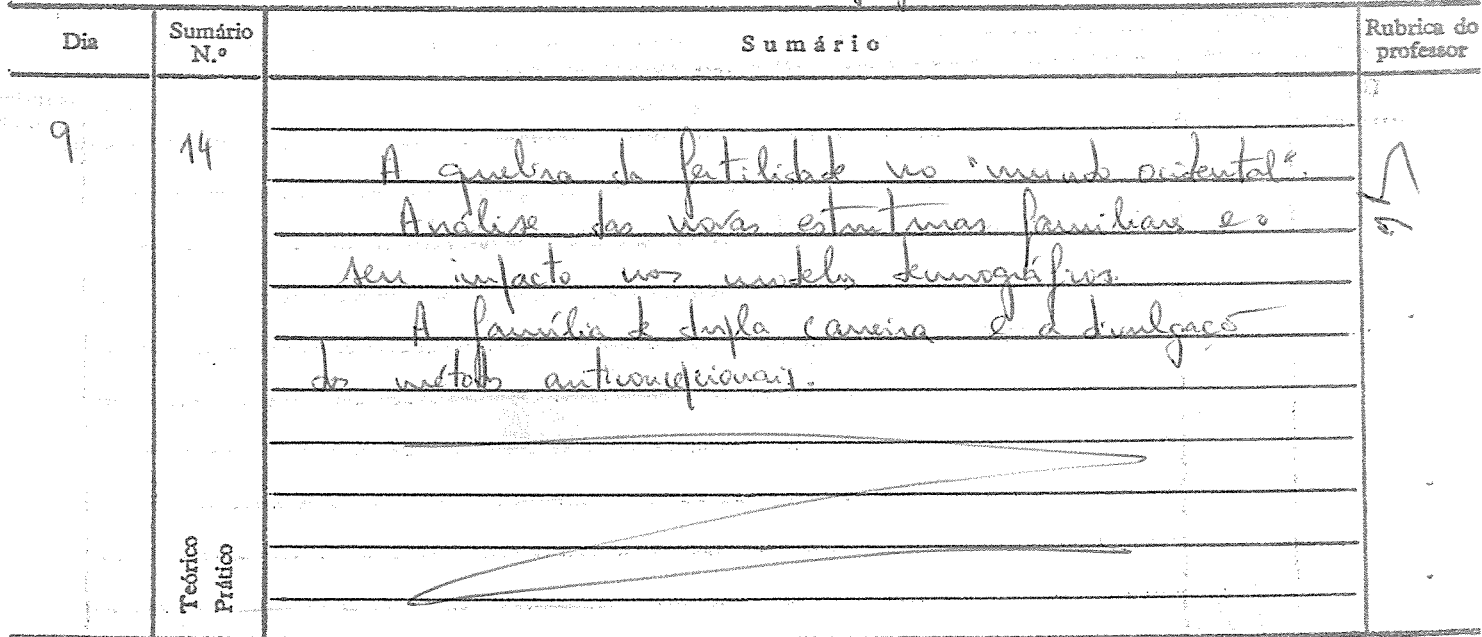 Dia
Sumário N.º
Sumário
Rubrica do professor
9
14
A quebra da fertilidade no "mundo ocidental".
Análise das novas estruturas familiares e o
seu impacto nos modelos demográficos.
A família de dupla carreira e a divulgação
dos métodos anticoncepcionais.
Teórico
Prático